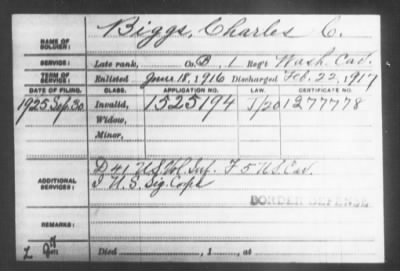 NAME OF SOLDIER: Biggs, Charles C.
SERVICE: Late rank, Co. B, 1 Reg't Wash. Cav.
TERM OF SERVICE: Enlisted June 18, 1916 Discharged Feb. 22, 1917
DATE OF FILING. CLASS. APPLICATION NO. LAW. CERTIFICATE NO.
1925 Sep. 30 Invalid, 1525194 1277778
Widow,
Minor,
ADDITIONAL SERVICES: D 41 U.S. Vol. Inf. F 5 U.S. Cav.
I U.S. Sig. Corps
BORDER DEFENSE
REMARKS:
Died , 1 , at